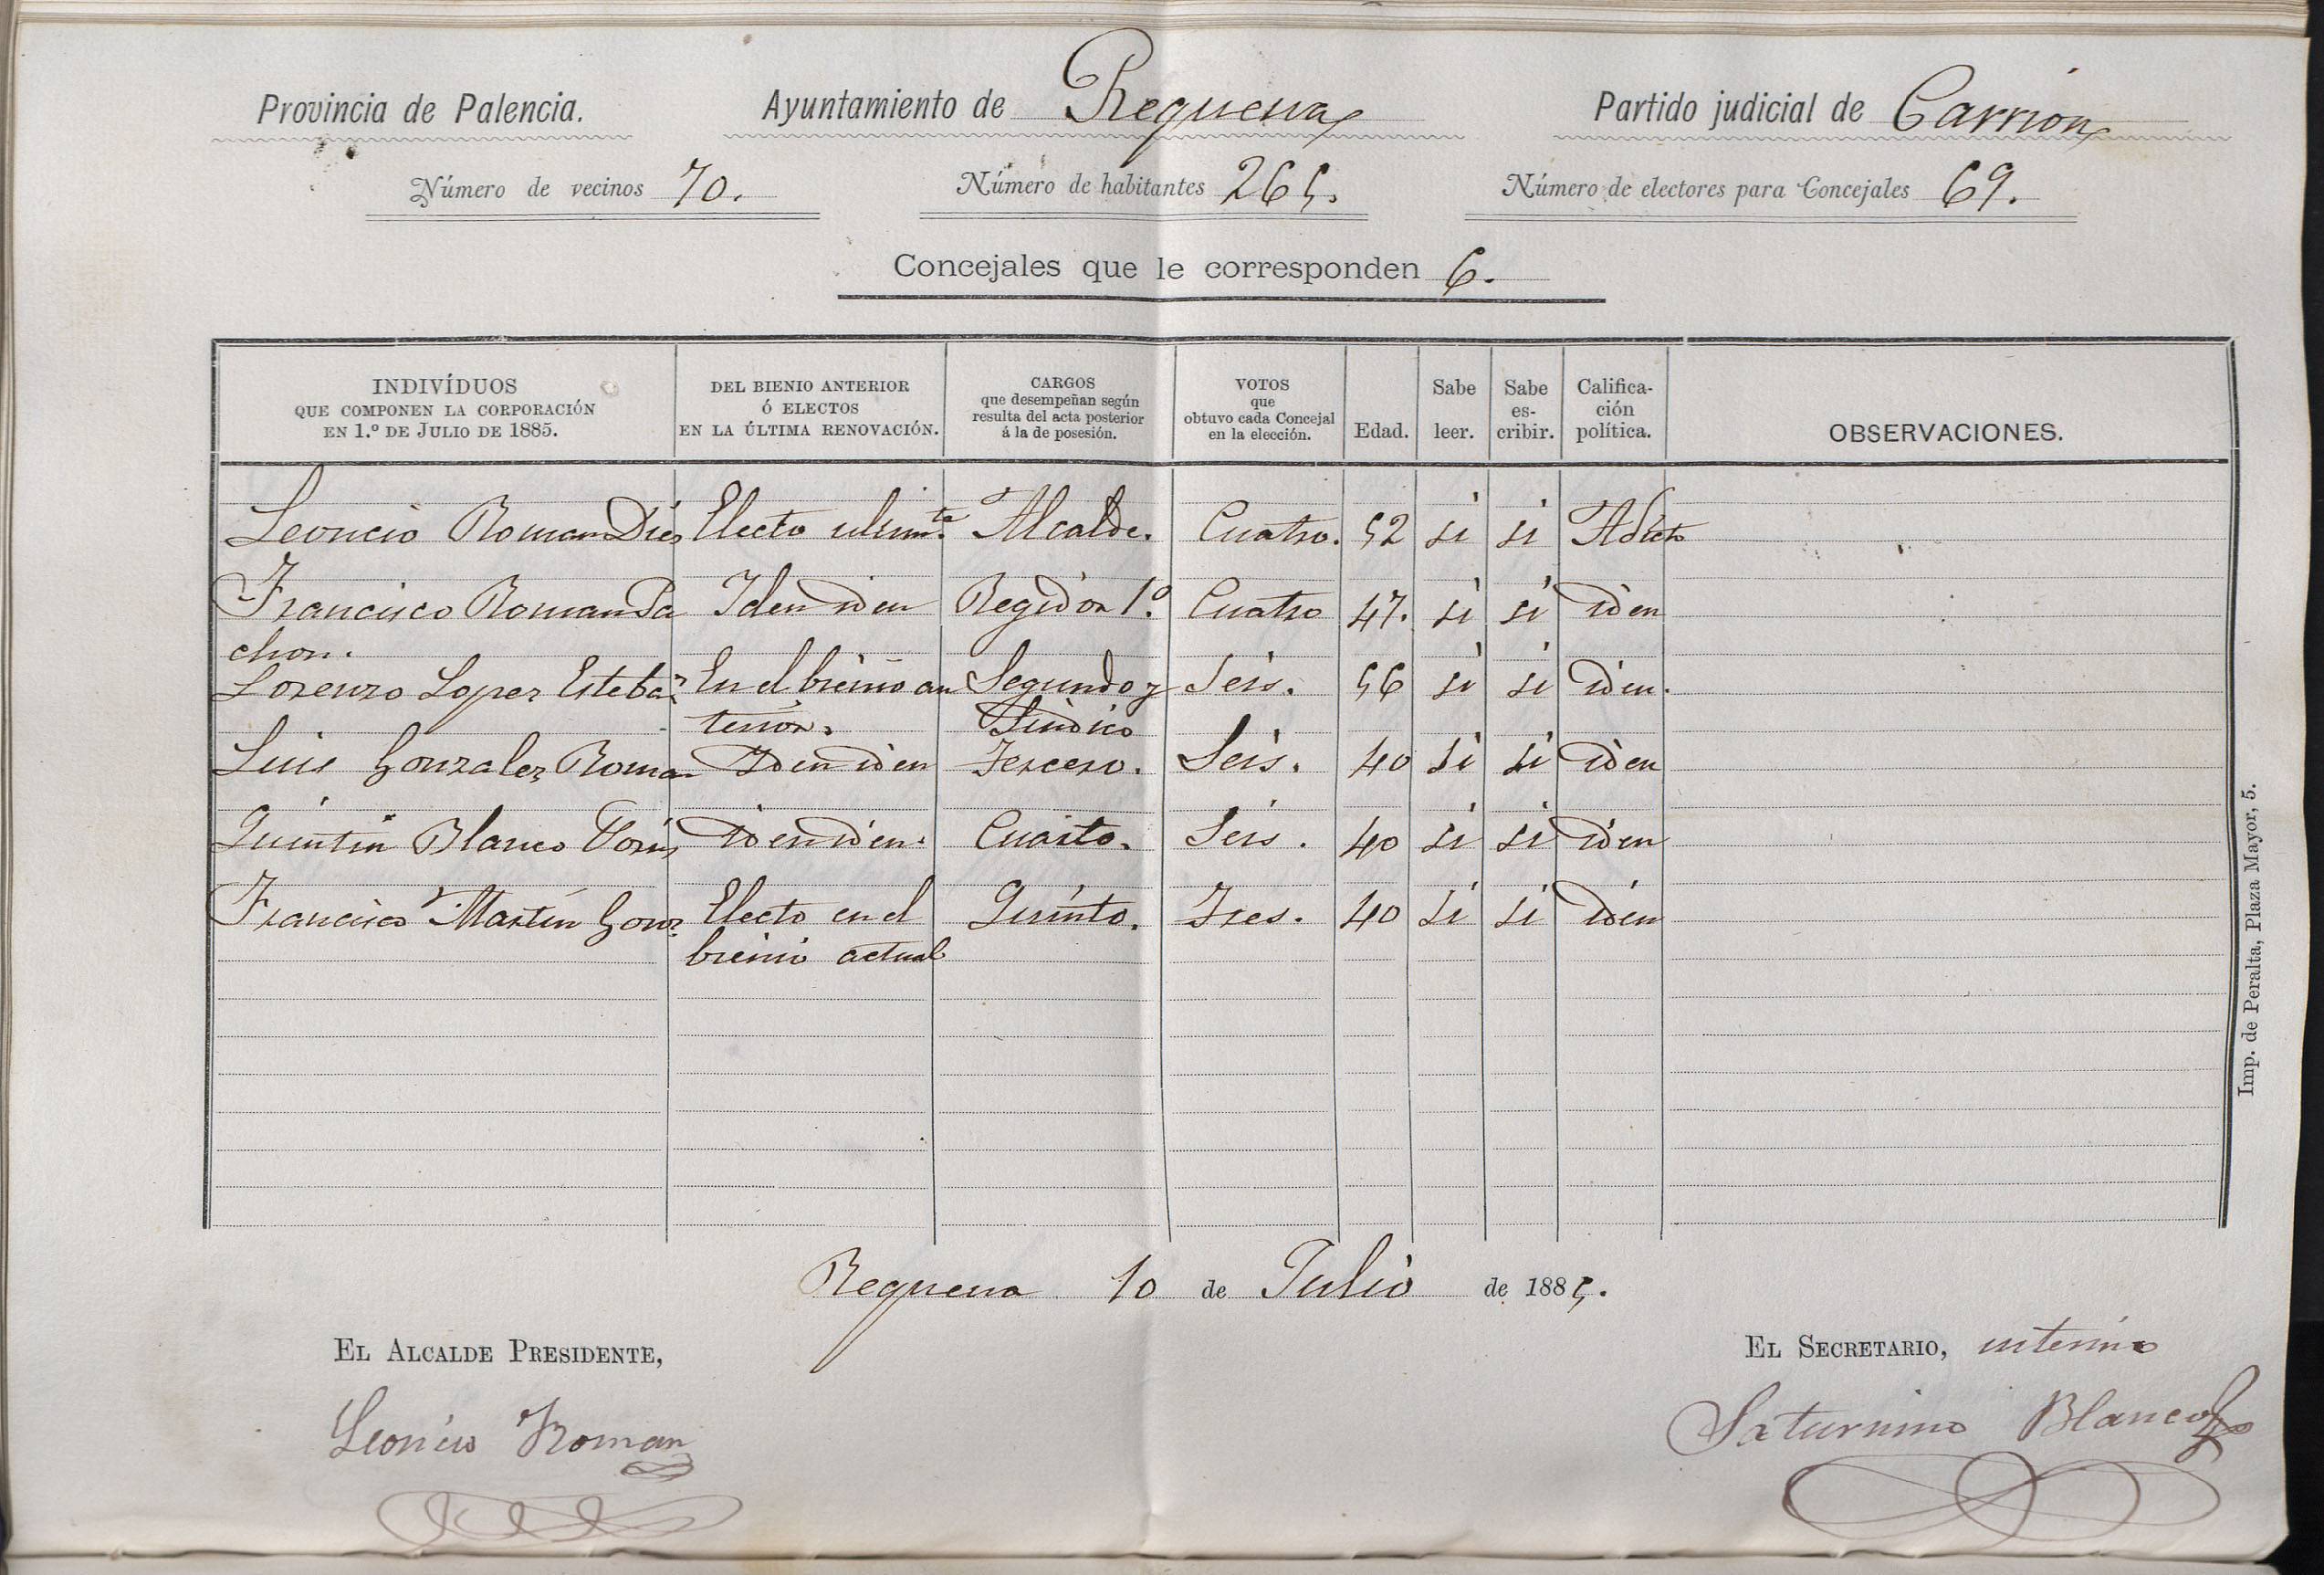 Provincia de Palencia. Ayuntamiento de Requena Partido judicial de Carrion
Número de vecinos 70. Número de habitantes 265. Número de electores para Concejales 69.
Concejales que le corresponden 6.
INDIVÍDUOS QUE COMPONEN LA CORPORACIÓN EN 1.º DE JULIO DE 1885.
DEL BIENIO ANTERIOR Ó ELECTOS EN LA ÚLTIMA RENOVACIÓN.
CARGOS que desempeñan según resulta del acta posterior á la de posesión.
VOTOS que obtuvo cada Concejal en la elección.
Edad.
Sabe leer.
Sabe es-cribir.
Califica-ción política.
OBSERVACIONES.
Leoncio Roman Dies Electo ultimte. Alcalde. Cuatro. 52 si si Adicto
Francisco Roman Pa Iden iden Regidor 1.º Cuatro 47. si si iden
chon.
Lorenzo Lopez Esteban En el bienio an Segundo y Seis. 56 si si iden.
terior. Sindico
Luis Gonzalez Roman Iden iden Tercero. Seis. 40 si si iden
Quintin Blanco iden iden. Cuarto. Seis. 40 si si iden
Francisco Martin Gonz Electo en el Quinto. Tres. 40 si si iden
bienio actual
Requena 10 de Julio de 1885.
EL ALCALDE PRESIDENTE, EL SECRETARIO, interino
Leoncio Roman Saturnino Blanco
Imp. de Peralta, Plaza Mayor, 5.